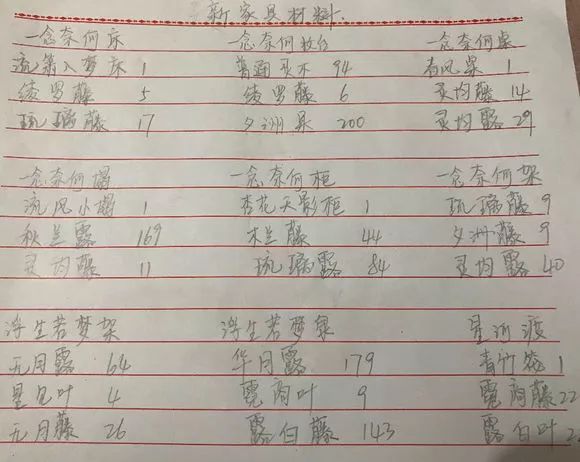 新家具材料.
一念奈何床 一念奈何 一念奈何桌
流 入梦床 1 普通灵木 94 春风桌 1
绫罗藤 5 绫罗藤 6 灵均藤 14
琉璃藤 17 夕洲果 200 灵均露 29
一念奈何榻 一念奈何柜 一念奈何架
流风小榻 1 杏花天影柜 1 琉璃藤 9
秋兰露 169 木兰藤 44 夕洲藤 9
灵均藤 11 琉璃露 84 灵均露 40
浮生若梦架 浮生若梦 星河渡
无月露 64 华月露 179 青竹筏 1
星见叶 4 霓裳叶 9 霓裳藤 22
无月藤 26 露白藤 143 露白叶